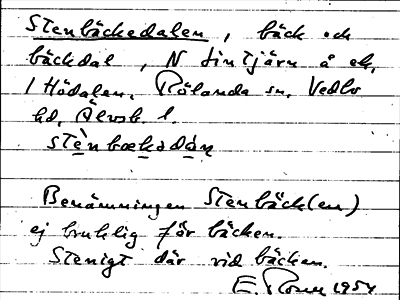 Stenbäckedalen, bäck och
bäckdal, N Lintjärn å ek,
/ Hödalen. Rölanda sn. Vedbo
hd, Älvsb. l.
stènbækədàn
Benämningen Stenbäck(en)
ej bruklig för bäcken.
Stenigt där vid bäcken.
E. 1954